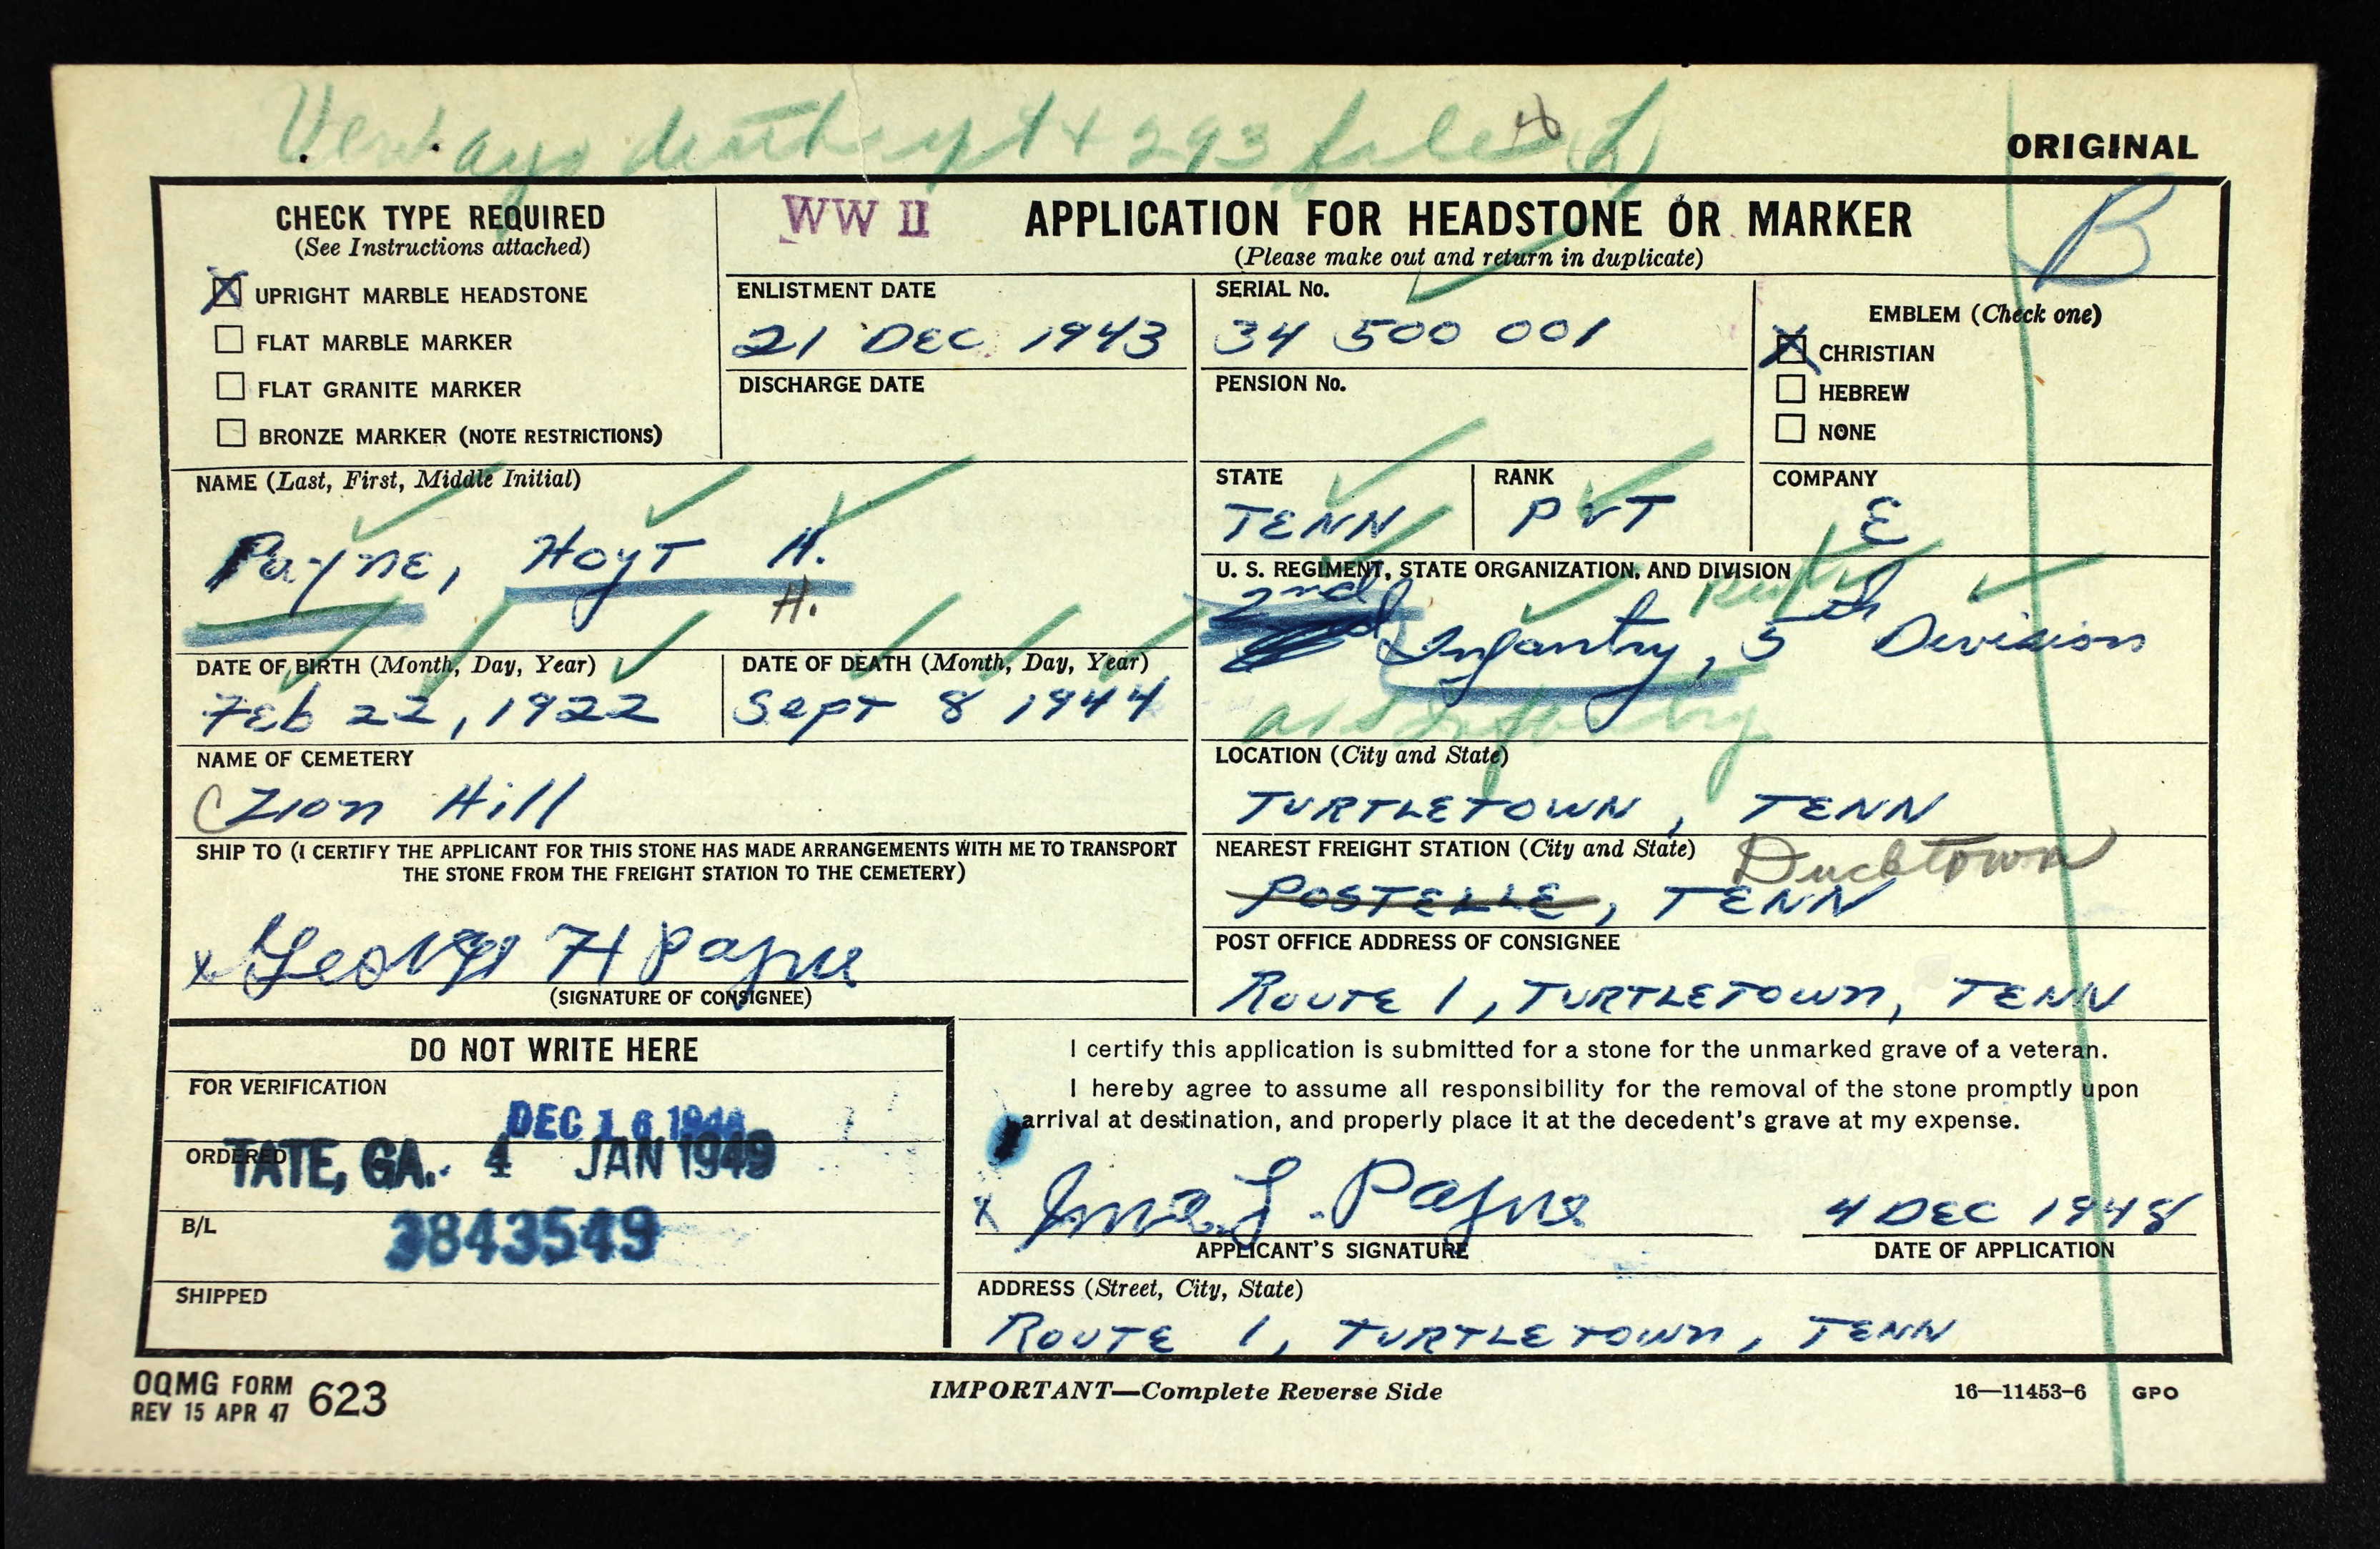 293 file
ORIGINAL
CHECK TYPE REQUIRED
(See Instructions attached)
UPRIGHT MARBLE HEADSTONE
FLAT MARBLE MARKER
FLAT GRANITE MARKER
BRONZE MARKER (NOTE RESTRICTIONS)
WW II
APPLICATION FOR HEADSTONE OR MARKER
(Please make out and return in duplicate)
B
ENLISTMENT DATE
21 DEC 1943
SERIAL No.
34 500 001
DISCHARGE DATE
PENSION No.
EMBLEM (Check one)
CHRISTIAN
HEBREW
NONE
NAME (Last, First, Middle Initial)
Payne, Hoyt H.
H.
STATE
TENN
RANK
PVT
COMPANY
E
U. S. REGIMENT, STATE ORGANIZATION, AND DIVISION
2nd
Infantry, 5th Division
DATE OF BIRTH (Month, Day, Year)
Feb 22, 1922
DATE OF DEATH (Month, Day, Year)
Sept 8 1944
NAME OF CEMETERY
Zion Hill
LOCATION (City and State)
TURTLETOWN, TENN
SHIP TO (I CERTIFY THE APPLICANT FOR THIS STONE HAS MADE ARRANGEMENTS WITH ME TO TRANSPORT
THE STONE FROM THE FREIGHT STATION TO THE CEMETERY)
NEAREST FREIGHT STATION (City and State)
Ducktown
POSTELLE, TENN
x George H Payne
(SIGNATURE OF CONSIGNEE)
POST OFFICE ADDRESS OF CONSIGNEE
ROUTE 1, TURTLETOWN, TENN
DO NOT WRITE HERE
FOR VERIFICATION
DEC 16
ORDERED
TATE, GA. 4 JAN 1949
B/L
3843549
SHIPPED
I certify this application is submitted for a stone for the unmarked grave of a veteran.
I hereby agree to assume all responsibility for the removal of the stone promptly upon
arrival at destination, and properly place it at the decedent's grave at my expense.
x L. Payne
APPLICANT'S SIGNATURE
4 DEC 1948
DATE OF APPLICATION
ADDRESS (Street, City, State)
ROUTE 1, TURTLETOWN, TENN
OQMG FORM 623
REV 15 APR 47
IMPORTANT—Complete Reverse Side
16—11453-6 GPO